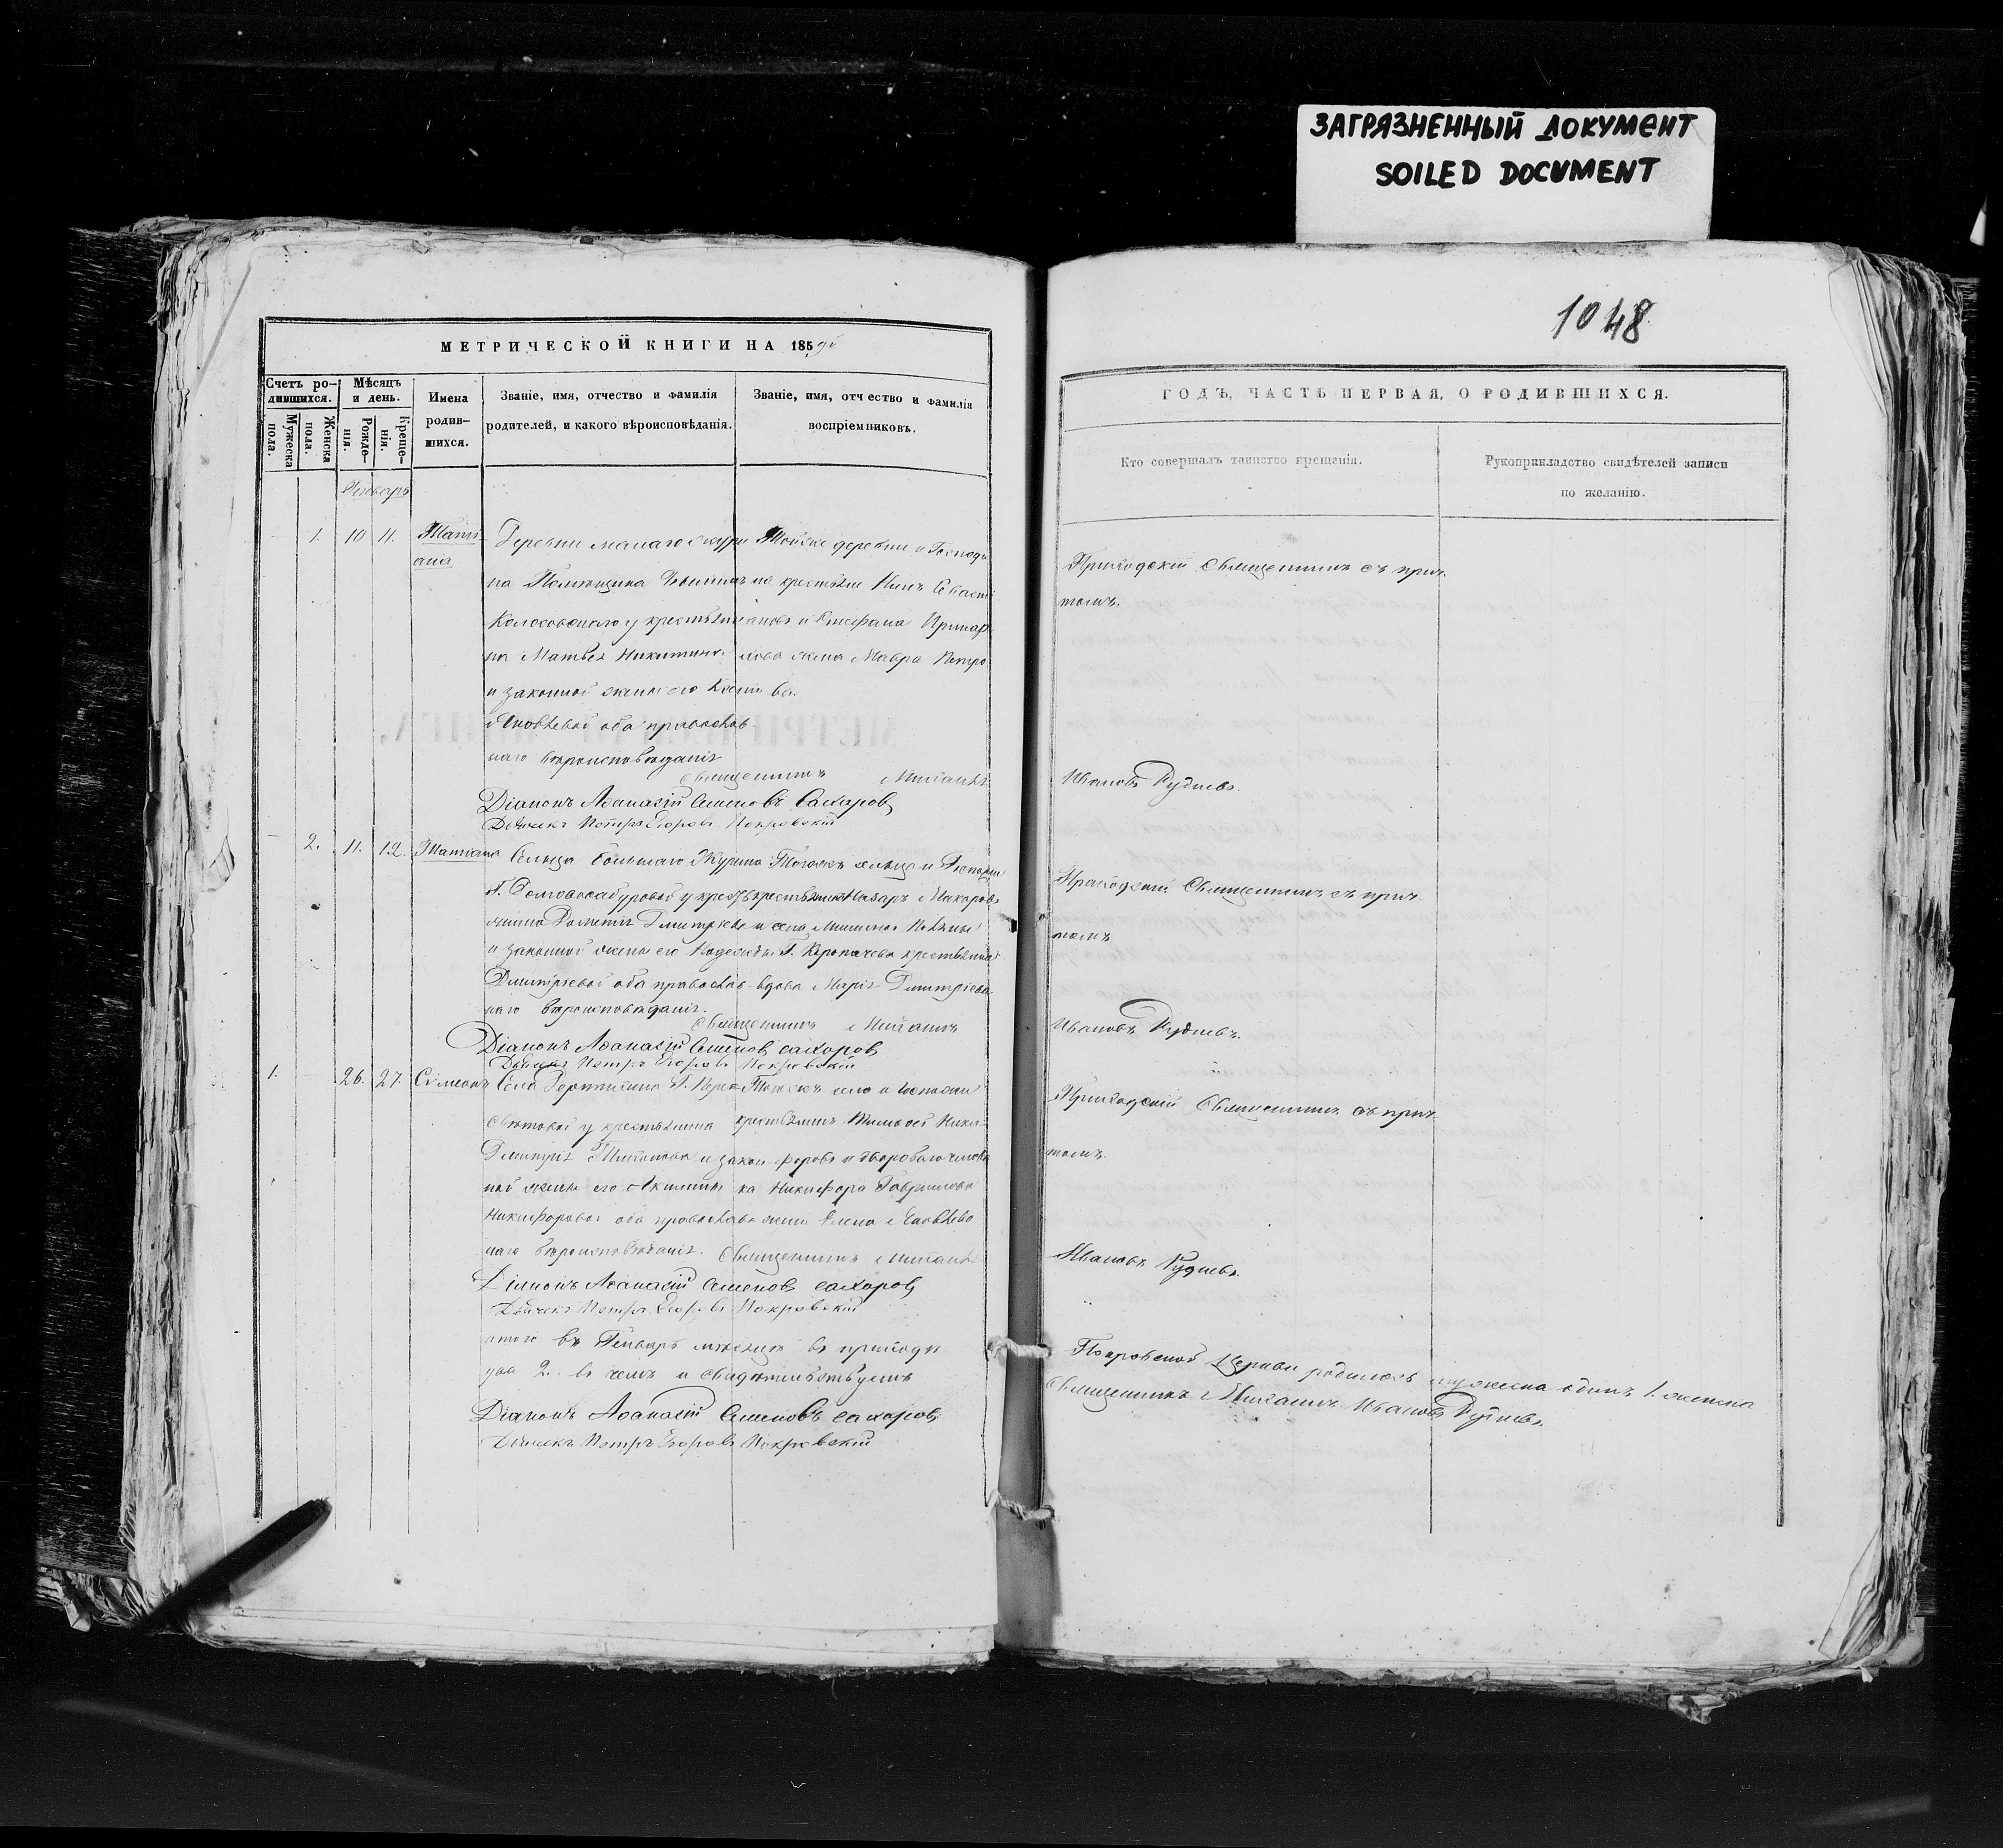 ЗАГРЯЗНЕННЫЙ ДОКУМЕНТ
SOILED DOCUMENT
1048
МЕТРИЧЕСКОЙ КНИГИ НА 185
Счетъ ро-
дившихся.
Мужеска
пола.
Женска
пола.
Мѣсяцъ
и день.
Рожде-
нія.
Креще-
нія.
Имена
родив-
шихся.
Званіе, имя, отчество и фамилія
родителей, и какого вѣроисповѣданія.
Званіе, имя, отчество и фамилія
воспріемниковъ.
Генварь
1. 10 11.
Татіа-
на
Деревни малаго
на Помѣщика
Колосовскаго у крестьяни
на Матвея Никитина
и законной жены его
Яковлевой оба православ-
наго вѣроисповѣданія
Тойже деревни и Господи
на крестьяне Севасті
ановъ и
жена Мавра Петро
ва.
Священникъ Михаилъ
Діаконъ Аѳанасій Семеновъ Сахаровъ
Дьячекъ Петръ Егоровъ Покровскій
2. 11. 12. Татіана
Сельца большаго
Г. у крестья
Дмитріева
и законной жены его Надежды
Дмитріевой оба православ-
наго вѣроисповѣданія.
Тогожъ сельца и Госпожи
крестьянинъ Назаръ Макаровъ
и села
Г. крестьянина
вдова Марія Дмитріева
Священникъ Михаилъ
Діаконъ Аѳанасій Семеновъ Сахаровъ
Дьячекъ Петръ Егоровъ Покровскій
1. 26. 27. Сѵмеонъ
Села Г.
у крестьянина
Дмитрія и закон
ной жены его Акилины
Никифоровой оба православ
наго вѣроисповѣданія.
Тогожъ села и Госпожи
крестьянинъ Тимоѳей Ники-
форовъ и двороваго челове
ка Никифора Гаврилова
жена Елена Яковлева
Священникъ Михаилъ
Діаконъ Аѳанасій Семеновъ Сахаровъ
Дьячекъ Петръ Егоровъ Покровскій
итого въ Генварѣ месяце въ приходе
два 2. въ чемъ и свидѣтельствуемъ
Діаконъ Аѳанасій Семеновъ Сахаровъ
Дьячекъ Петръ Егоровъ Покровскій
ГОДЪ, ЧАСТЬ ПЕРВАЯ, О РОДИВШИХСЯ.
Кто совершалъ таинство крещенія.
Рукоприкладство свидѣтелей записи
по желанію.
Приходскій Священникъ съ прич-
томъ.
Ивановъ Рудневъ.
Приходскій Священникъ съ прич-
томъ
Ивановъ Рудневъ.
Приходскій Священникъ съ прич-
томъ.
Ивановъ Рудневъ.
Покровской Церкви родилось мужеска одинъ 1. женска
Священникъ Михаилъ Ивановъ Рудневъ.